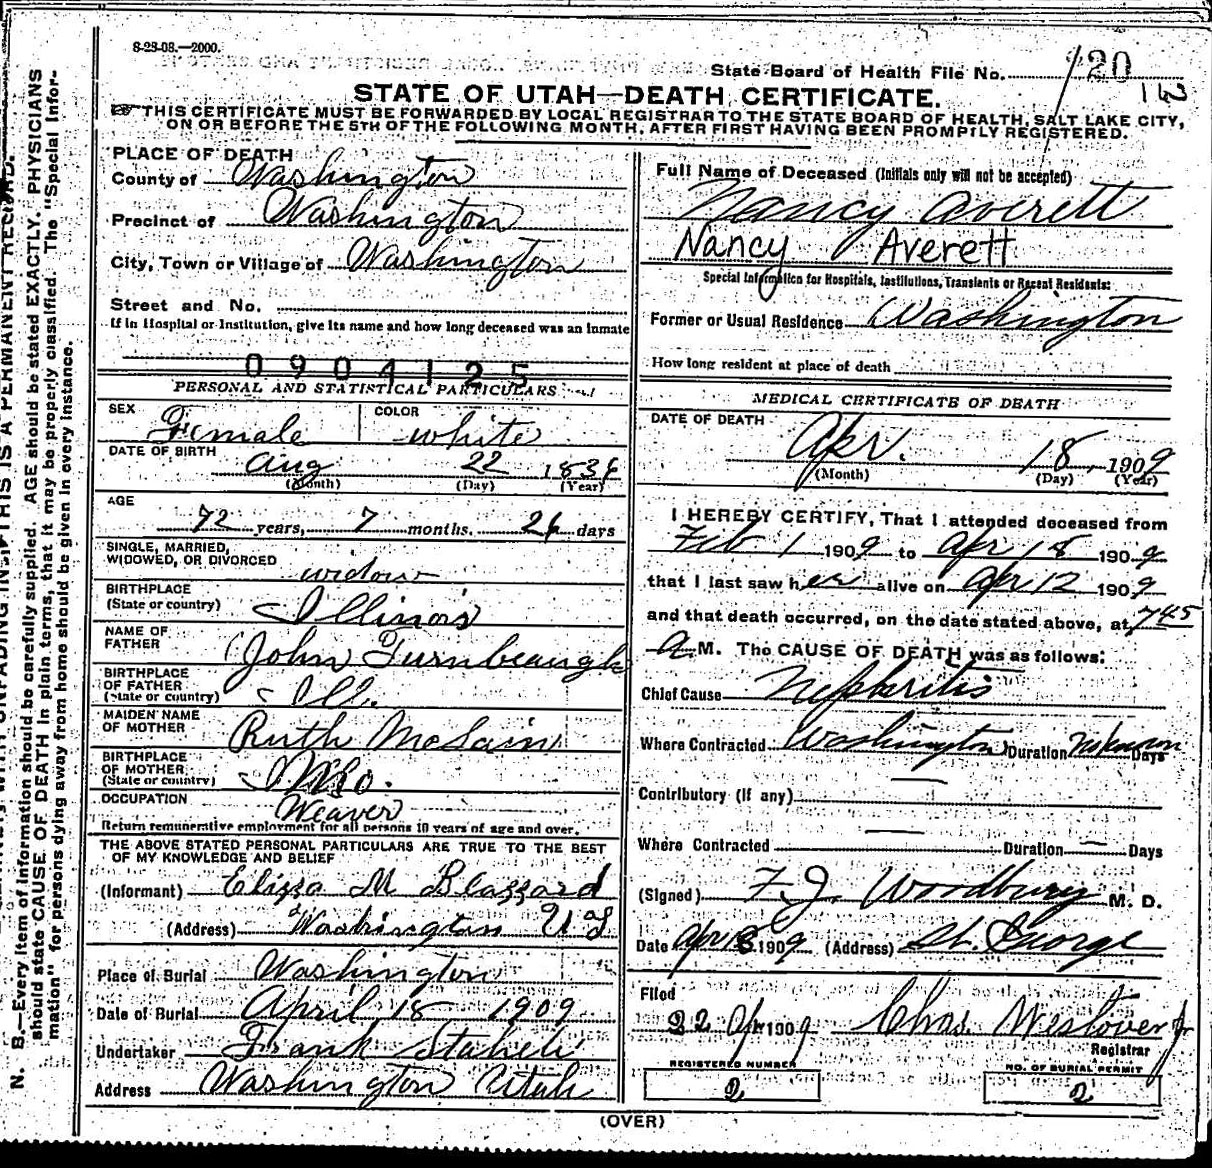 8-28-08.—2000.
State Board of Health File No. 120
13
STATE OF UTAH—DEATH CERTIFICATE.
THIS CERTIFICATE MUST BE FORWARDED BY LOCAL REGISTRAR TO THE STATE BOARD OF HEALTH, SALT LAKE CITY,
ON OR BEFORE THE 5TH OF THE FOLLOWING MONTH, AFTER FIRST HAVING BEEN PROMPTLY REGISTERED.
PLACE OF DEATH
County of Washington
Precinct of Washington
City, Town or Village of Washington
Street and No.
If in Hospital or Institution, give its name and how long deceased was an inmate
0904125
PERSONAL AND STATISTICAL PARTICULARS
SEX Female COLOR white
DATE OF BIRTH Aug 22 1836
(Month) (Day) (Year)
AGE
72 years, 7 months. 26 days
SINGLE, MARRIED,
WIDOWED, OR DIVORCED widow
BIRTHPLACE
(State or country) Illinois
NAME OF
FATHER John Turnbeaugh
BIRTHPLACE
OF FATHER
(State or country) Ill.
MAIDEN NAME
OF MOTHER Ruth McLain
BIRTHPLACE
OF MOTHER
(State or country)
OCCUPATION Weaver
Return remunerative employment for all persons 10 years of age and over.
THE ABOVE STATED PERSONAL PARTICULARS ARE TRUE TO THE BEST
OF MY KNOWLEDGE AND BELIEF
(Informant) Eliza M Blazzard
(Address) Washington
Place of Burial Washington
Date of Burial April 18 1909
Undertaker Frank Staheli
Address Washington Utah
Full Name of Deceased (Initials only will not be accepted)
Nancy Averett
Nancy Averett
Special Information for Hospitals, Institutions, Transients or Recent Residents:
Former or Usual Residence Washington
How long resident at place of death
MEDICAL CERTIFICATE OF DEATH
DATE OF DEATH
Apr. 18, 1909
(Month) (Day) (Year)
I HEREBY CERTIFY, That I attended deceased from
Feb 1 1909 to Apr 18 1909
that I last saw her alive on Apr 12 1909
and that death occurred, on the date stated above, at 745
a M. The CAUSE OF DEATH was as follows:
Chief Cause Nephritis
Where Contracted Washington Duration Days
Contributory (if any) —
Where Contracted — Duration — Days
(Signed) F. J. Woodbury M. D.
Date Apr 18 1909 (Address) St. George
Filed
22 Apr 1909 Chas. Westover Jr
Registrar
REGISTERED NUMBER
2
NO. OF BURIAL PERMIT
2
(OVER)
N. B.—Every item of information should be carefully supplied. AGE should be stated EXACTLY. PHYSICIANS
should state CAUSE OF DEATH in plain terms, that it may be properly classified. The "Special Infor-
mation" for persons dying away from home should be given in every instance.
THIS IS A PERMANENT RECORD.